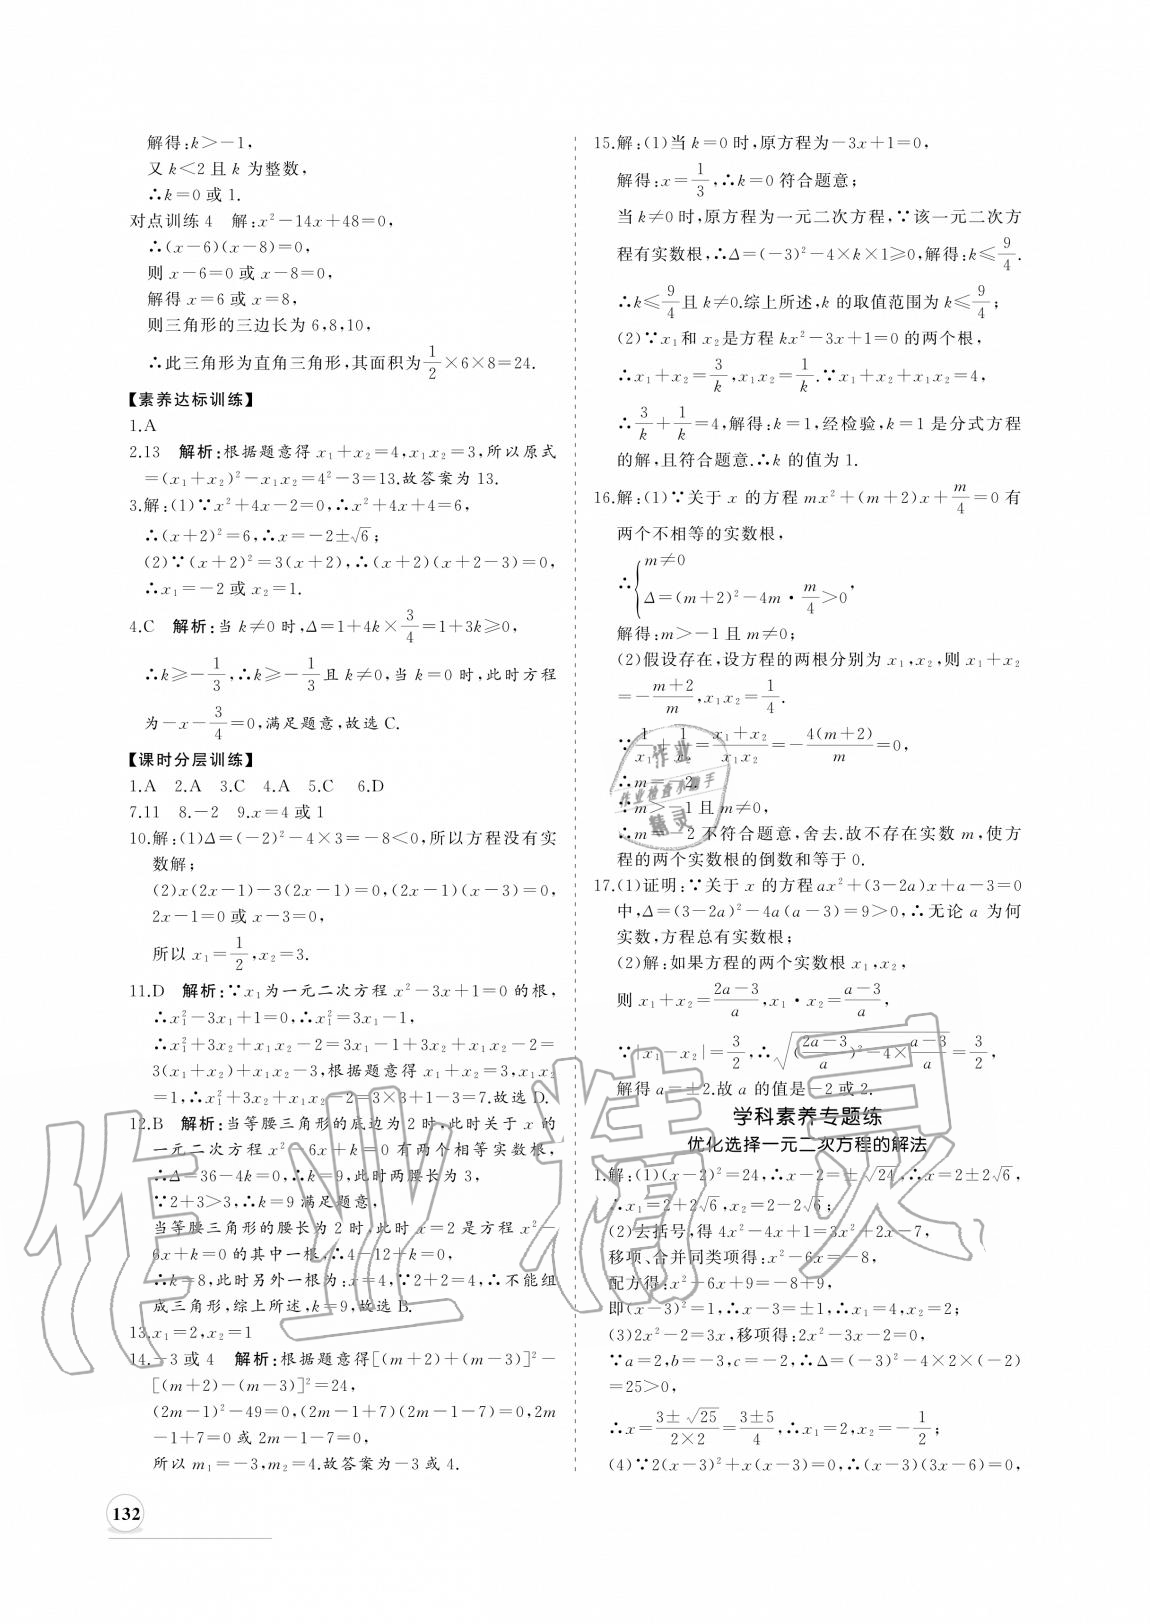 解得:k>-1,
又 k<2 且 k 为整数,
∴k=0 或 1.
对点训练 4 解:x²-14x+48=0,
∴(x-6)(x-8)=0,
则 x-6=0 或 x-8=0,
解得 x=6 或 x=8,
则三角形的三边长为 6,8,10,
∴此三角形为直角三角形,其面积为1/2×6×8=24.
【素养达标训练】
1.A
2.13 解析:根据题意得 x₁+x₂=4,x₁x₂=3,所以原式
=(x₁+x₂)²-x₁x₂=4²-3=13.故答案为 13.
3.解:(1)∵x²+4x-2=0,∴x²+4x+4=6,
∴(x+2)²=6,∴x=-2±√6;
(2)∵(x+2)²=3(x+2),∴(x+2)(x+2-3)=0,
∴x₁=-2 或 x₂=1.
4.C 解析:当 k≠0 时,Δ=1+4k×3/4=1+3k≥0,
∴k≥-1/3,∴k≥-1/3且 k≠0,当 k=0 时,此时方程
为-x-3/4=0,满足题意,故选 C.
【课时分层训练】
1.A 2.A 3.C 4.A 5.C 6.D
7.11 8.-2 9.x=4 或 1
10.解:(1)Δ=(-2)²-4×3=-8<0,所以方程没有实
数解;
(2)x(2x-1)-3(2x-1)=0,(2x-1)(x-3)=0,
2x-1=0 或 x-3=0,
所以 x₁=1/2,x₂=3.
11.D 解析:∵x₁为一元二次方程 x²-3x+1=0 的根,
∴x₁²-3x₁+1=0,∴x₁²=3x₁-1,
∴x₁²+3x₂+x₁x₂-2=3x₁-1+3x₂+x₁x₂-2=
3(x₁+x₂)+x₁x₂-3,根据题意得 x₁+x₂=3,x₁x₂
=1,∴x₁²+3x₂+x₁x₂-2=3×3+1-3=7.故选 D.
12.B 解析:当等腰三角形的底边为 2 时,此时关于 x 的
一元二次方程 x²-6x+k=0 有两个相等实数根,
∴Δ=36-4k=0,∴k=9,此时两腰长为 3,
∵2+3>3,∴k=9 满足题意,
当等腰三角形的腰长为 2 时,此时 x=2 是方程 x²-
6x+k=0 的其中一根,∴4-12+k=0,
∴k=8,此时另外一根为:x=4,∵2+2=4,∴不能组
成三角形,综上所述,k=9,故选 B.
13.x₁=2,x₂=1
14.-3 或 4 解析:根据题意得[(m+2)+(m-3)]²-
[(m+2)-(m-3)]²=24,
(2m-1)²-49=0,(2m-1+7)(2m-1-7)=0,2m
-1+7=0 或 2m-1-7=0,
所以 m₁=-3,m₂=4.故答案为-3 或 4.
132
15.解:(1)当 k=0 时,原方程为-3x+1=0,
解得:x=1/3,∴k=0 符合题意;
当 k≠0 时,原方程为一元二次方程,∵该一元二次方
程有实数根,∴Δ=(-3)²-4×k×1≥0,解得:k≤9/4.
∴k≤9/4且 k≠0.综上所述,k 的取值范围为 k≤9/4;
(2)∵x₁和 x₂是方程 kx²-3x+1=0 的两个根,
∴x₁+x₂=3/k,x₁x₂=1/k.∵x₁+x₂+x₁x₂=4,
∴3/k+1/k=4,解得:k=1,经检验,k=1 是分式方程
的解,且符合题意.∴k 的值为 1.
16.解:(1)∵关于 x 的方程 mx²+(m+2)x+m/4=0 有
两个不相等的实数根,
∴{m≠0
Δ=(m+2)²-4m·m/4>0,
解得:m>-1 且 m≠0;
(2)假设存在,设方程的两根分别为 x₁,x₂,则 x₁+x₂
=-(m+2)/m,x₁x₂=1/4.
∵1/x₁+1/x₂=(x₁+x₂)/(x₁x₂)=-4(m+2)/m=0,
∴m=-2.
∵m>-1 且 m≠0,
∴m=-2 不符合题意,舍去.故不存在实数 m,使方
程的两个实数根的倒数和等于 0.
17.(1)证明:∵关于 x 的方程 ax²+(3-2a)x+a-3=0
中,Δ=(3-2a)²-4a(a-3)=9>0,∴无论 a 为何
实数,方程总有实数根;
(2)解:如果方程的两个实数根 x₁,x₂,
则 x₁+x₂=(2a-3)/a,x₁·x₂=(a-3)/a,
∵|x₁-x₂|=3/2,∴√(((2a-3)/a)²-4×(a-3)/a)=3/2,
解得 a=±2.故 a 的值是-2 或 2.
学科素养专题练
优化选择一元二次方程的解法
1.解:(1)(x-2)²=24,∴x-2=±√24,∴x=2±2√6,
∴x₁=2+2√6,x₂=2-2√6;
(2)去括号,得 4x²-4x+1=3x²+2x-7,
移项、合并同类项得:x²-6x=-8,
配方得:x²-6x+9=-8+9,
即(x-3)²=1,∴x-3=±1,∴x₁=4,x₂=2;
(3)2x²-2=3x,移项得:2x²-3x-2=0,
∵a=2,b=-3,c=-2,∴Δ=(-3)²-4×2×(-2)
=25>0,
∴x=(3±√25)/(2×2)=(3±5)/4,∴x₁=2,x₂=-1/2;
(4)∵2(x-3)²+x(x-3)=0,∴(x-3)(3x-6)=0,
作业精灵
作业
作业检查小助手
精灵